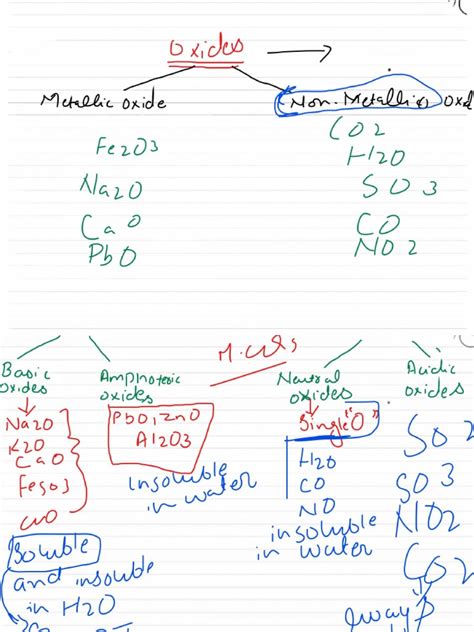 Oxides →
Metallic oxide
Non-Metallic Oxd
Fe2O3
Na2O
CaO
PbO
CO2
H2O
SO3
CO
NO2
M.CQs
Basic oxides
Na2O
K2O
CaO
FeSO3
CuO
Soluble
and insoluble
in H2O
Amphoteric
oxides
PbO, ZnO
Al2O3
insoluble
in water
Neutral
oxides
Single "O"
H2O
CO
NO
insoluble
in water
Acidic
oxides
SO2
SO3
NO2
CO2